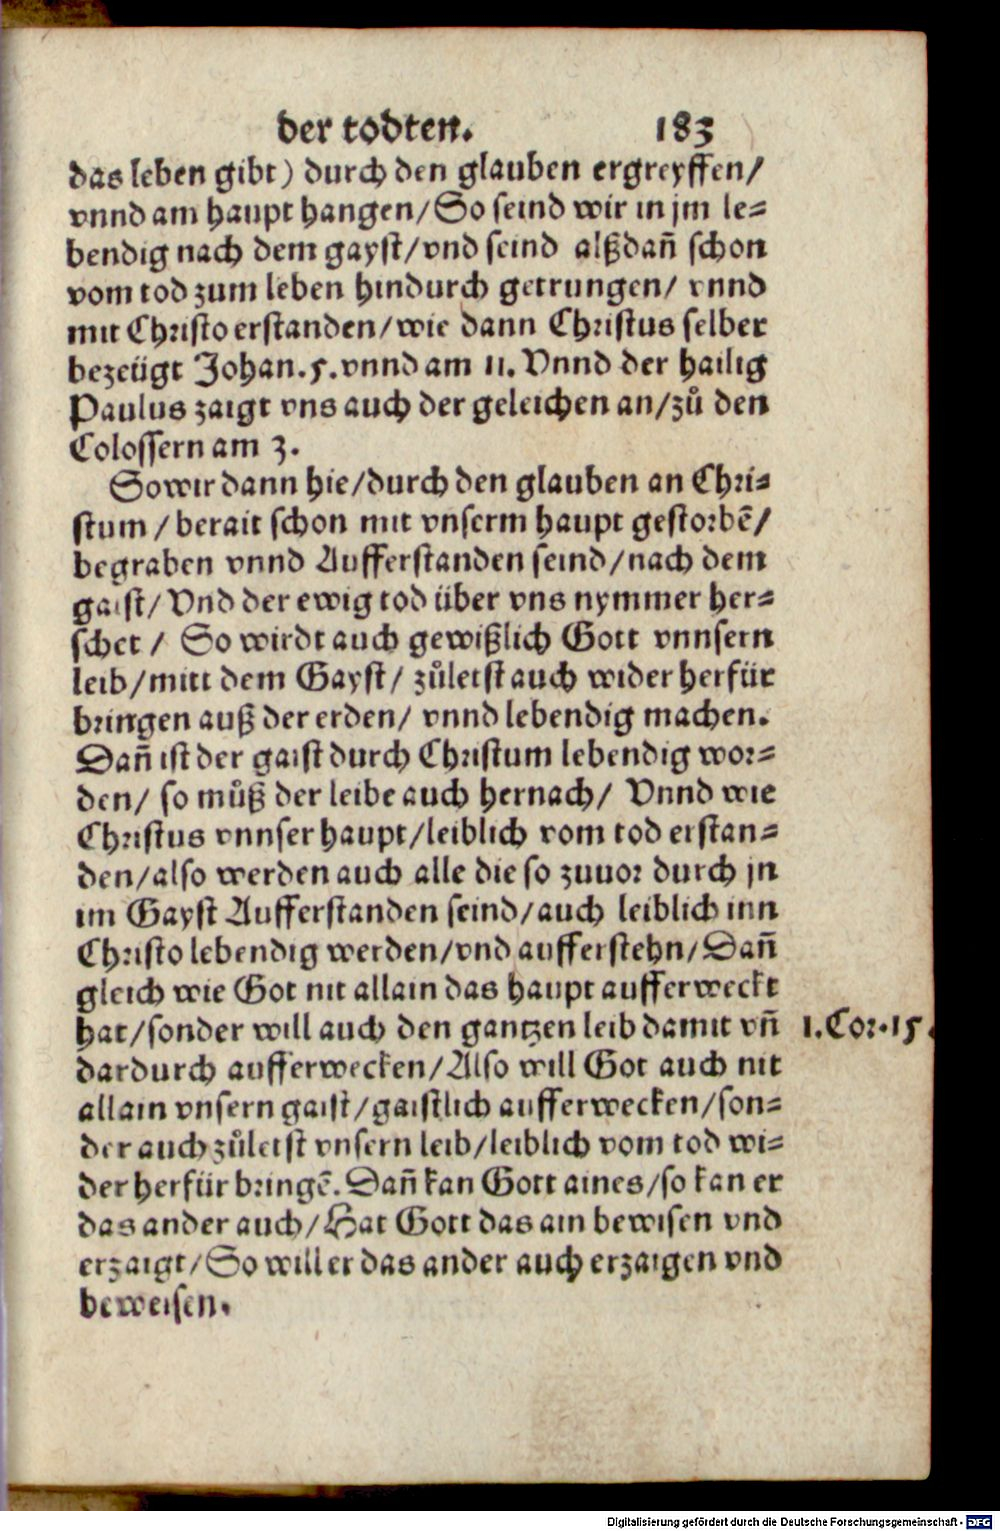 der todten. 183
das leben gibt) durch den glauben ergreyffen/
vnnd am haupt hangen/So seind wir in jm le=
bendig nach dem gayst/vnd seind alßdañ schon
vom tod zum leben hindurch getrungen/ vnnd
mit Christo erstanden/wie dann Christus selber
bezeügt Johan.5.vnnd am 11. Vnnd der hailig
Paulus zaigt vns auch der geleichen an/zů den
Colossern am 3.
So wir dann hie/durch den glauben an Chri=
stum/berait schon mit vnserm haupt gestorbē/
begraben vnnd Aufferstanden seind/nach dem
gaist/Vnd der ewig tod über vns nymmer her=
schet/ So wirdt auch gewißlich Gott vnnsern
leib/mitt dem Gayst/ zůletst auch wider herfür
bringen auß der erden/ vnnd lebendig machen.
Dañ ist der gaist durch Christum lebendig wor=
den/ so můß der leibe auch hernach/ Vnnd wie
Christus vnnser haupt/leiblich vom tod erstan=
den/also werden auch alle die so zuuor durch jn
im Gayst Aufferstanden seind/auch leiblich inn
Christo lebendig werden/vnd aufferstehn/Dañ
gleich wie Got nit allain das haupt aufferweckt
hat/sonder will auch den gantzen leib damit vñ 1.Cor.15.
dardurch aufferwecken/Also will Got auch nit
allain vnsern gaist/gaistlich aufferwecken/son=
der auch zůletst vnsern leib/leiblich vom tod wi=
der herfür bringē.Dañ kan Gott aines/so kan er
das ander auch/Hat Gott das ain bewisen vnd
erzaigt/So will er das ander auch erzaigen vnd
beweisen.
Digitalisierung gefördert durch die Deutsche Forschungsgemeinschaft - DFG